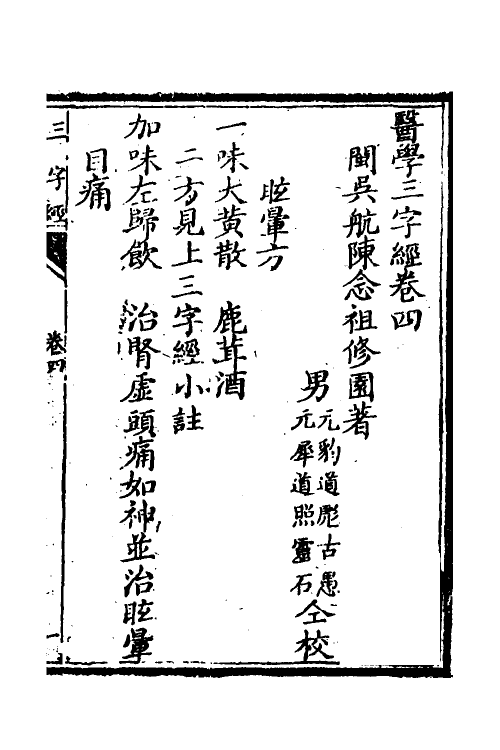 醫學三字經卷四
閩吳航陳念祖修園著
男元豹道彪古愚
元犀道照靈石仝校
眩暈方
一味大黃散 鹿茸酒
二方見上三字經小註
加味左歸飲 治腎虛頭痛如神並治眩暈
目痛
三字經 卷四 一